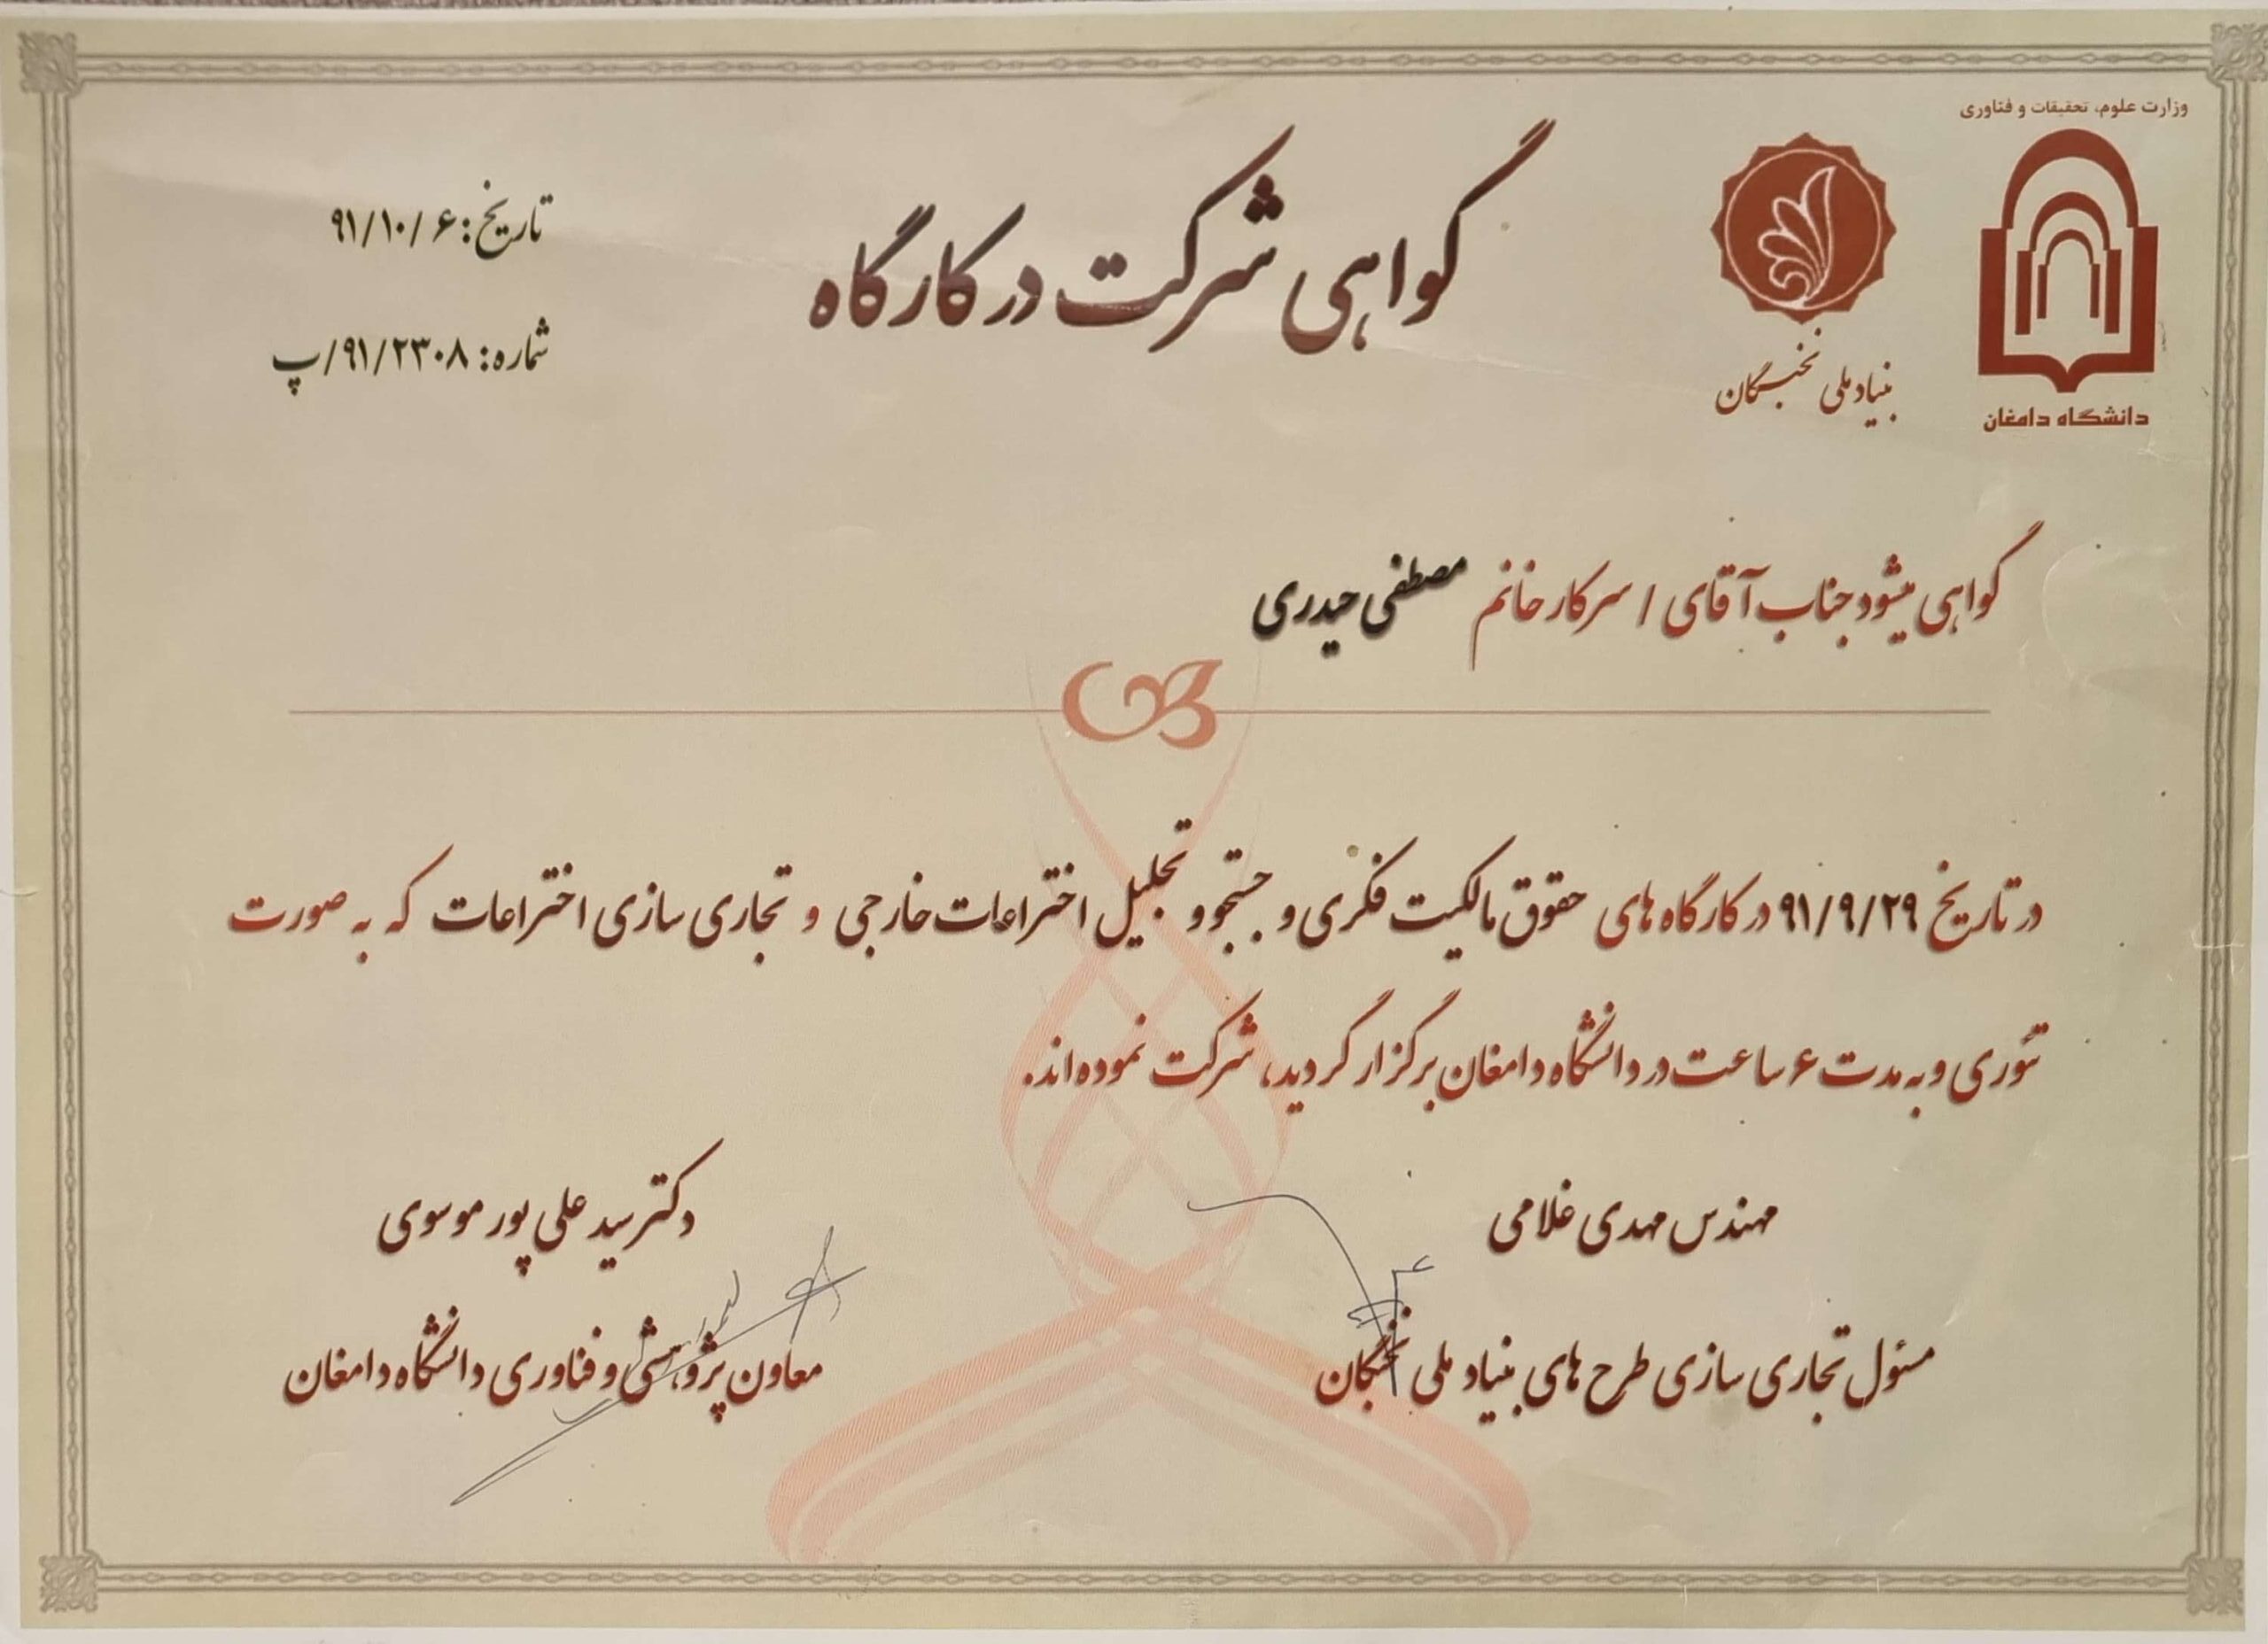 وزارت علوم، تحقیقات و فناوری
دانشگاه دامغان
بنیاد ملی نخبگان
گواهی شرکت در کارگاه
تاریخ: ۹۱/۱۰/۶
شماره: ۹۱/۲۳۰۸/پ
گواهی میشود جناب آقای / سرکار خانم مصطفی حیدری
در تاریخ ۹۱/۹/۲۹ در کارگاه های حقوق مالکیت فکری و جستجو و تحلیل اختراعات خارجی و تجاری سازی اختراعات که به صورت
تئوری و به مدت ۶ ساعت در دانشگاه دامغان برگزار گردید، شرکت نموده اند.
مهندس مهدی غلامی
مسئول تجاری سازی طرح های بنیاد ملی نخبگان
دکتر سید علی پور موسوی
معاون پژوهشی و فناوری دانشگاه دامغان